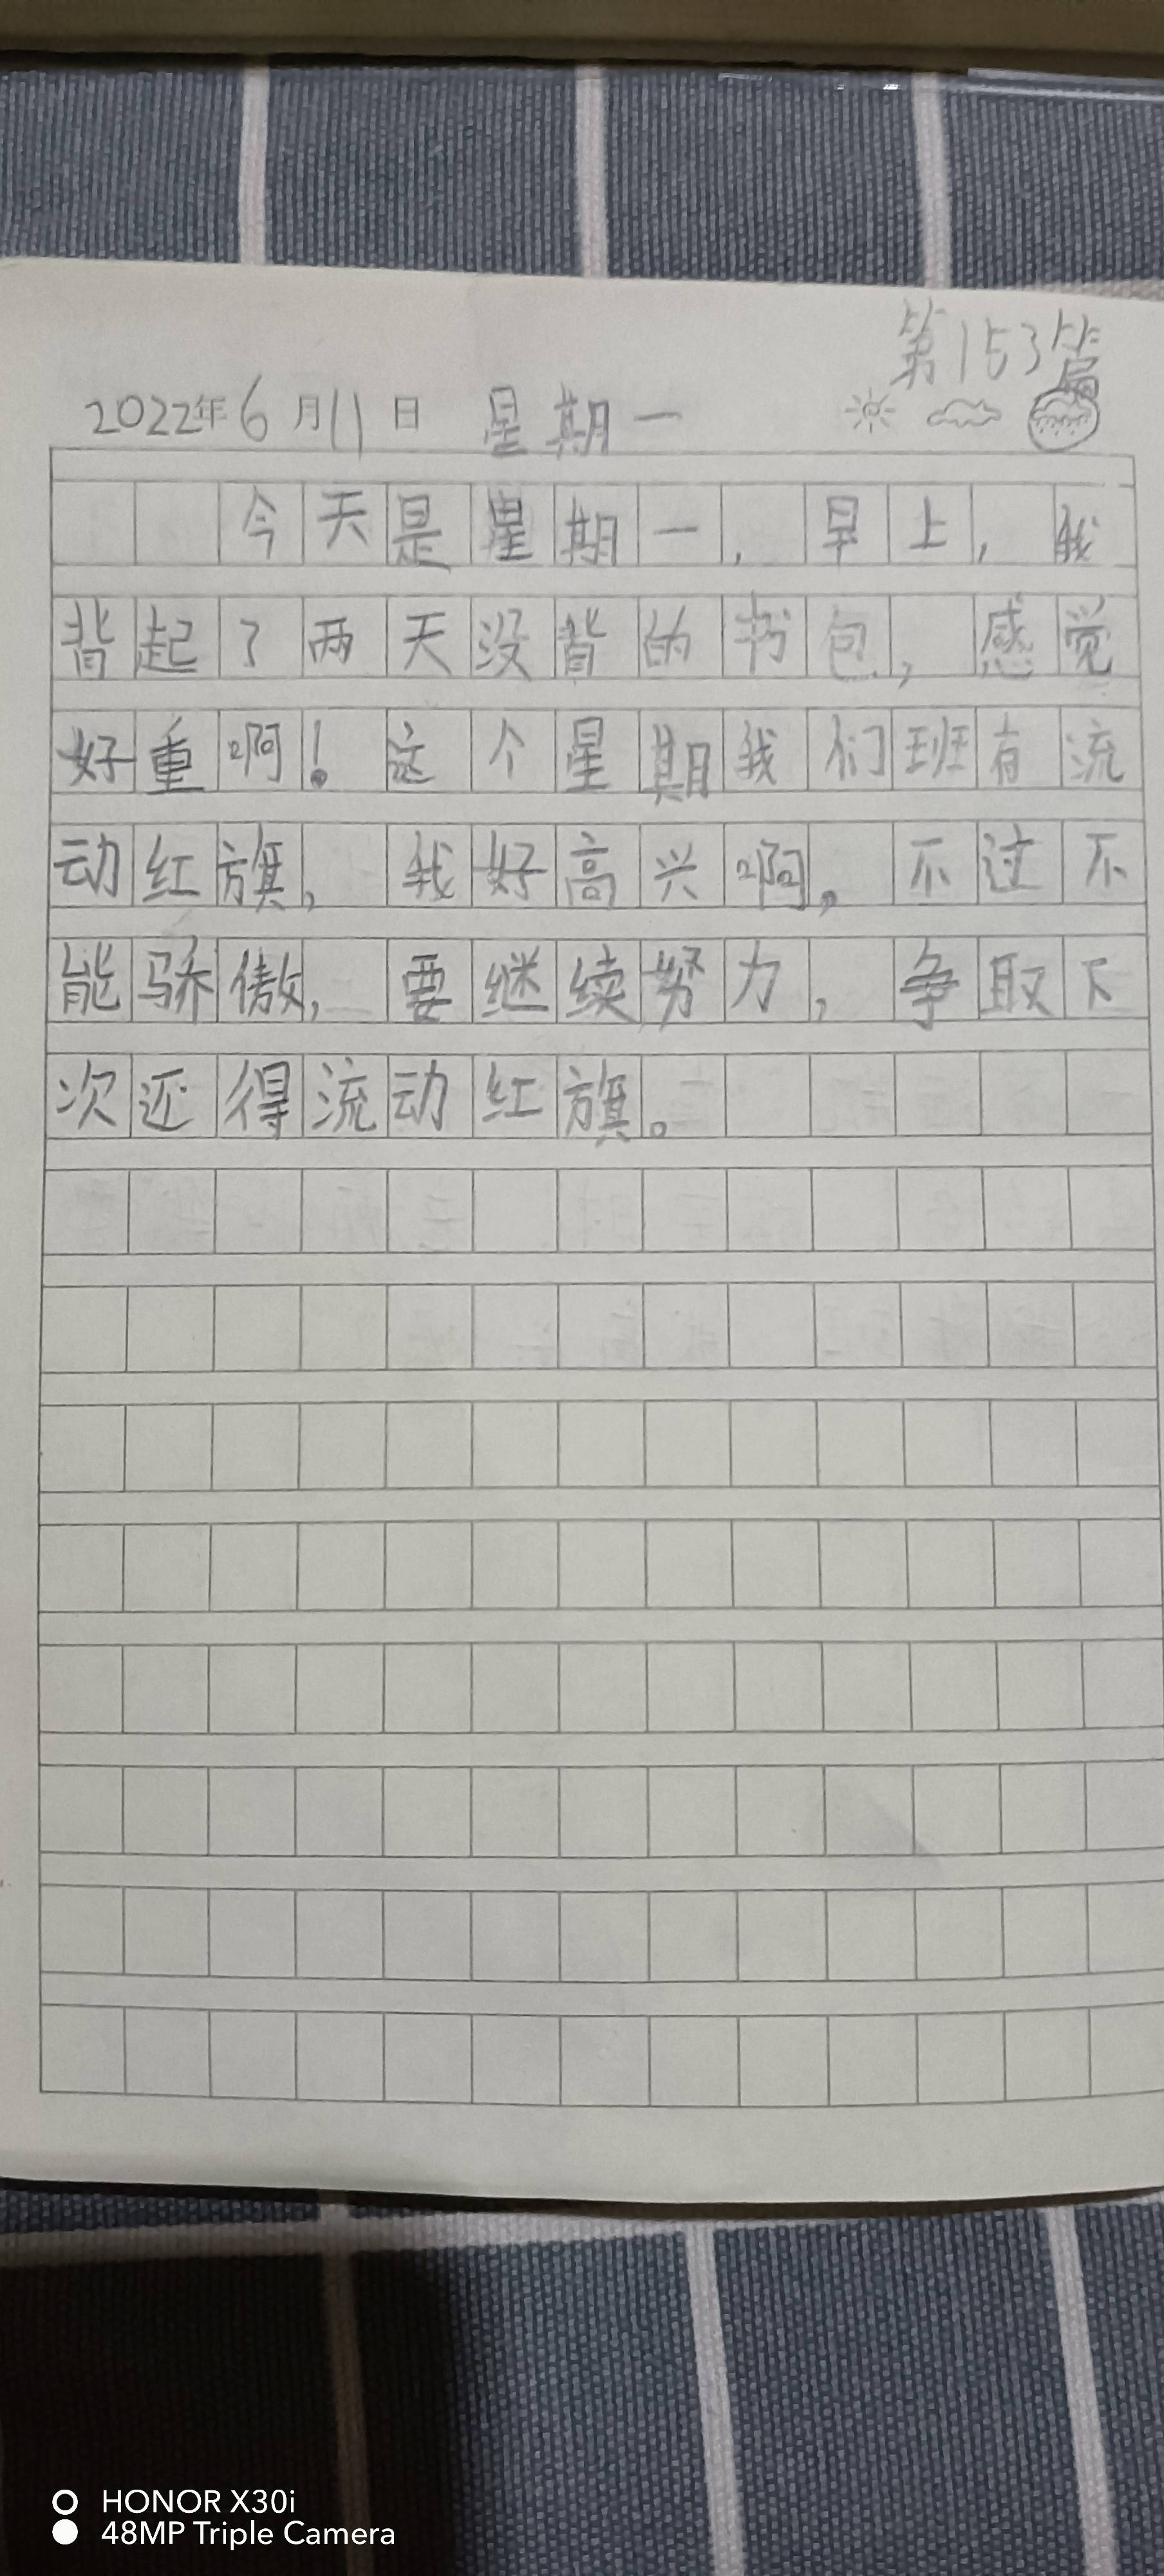 第153篇
2022年6月11日 星期一
今天是星期一,早上,我
背起了两天没背的书包,感觉
好重啊!这个星期我们班有流
动红旗,我好高兴啊,不过不
能骄傲,要继续努力,争取下
次还得流动红旗。
HONOR X30i
48MP Triple Camera